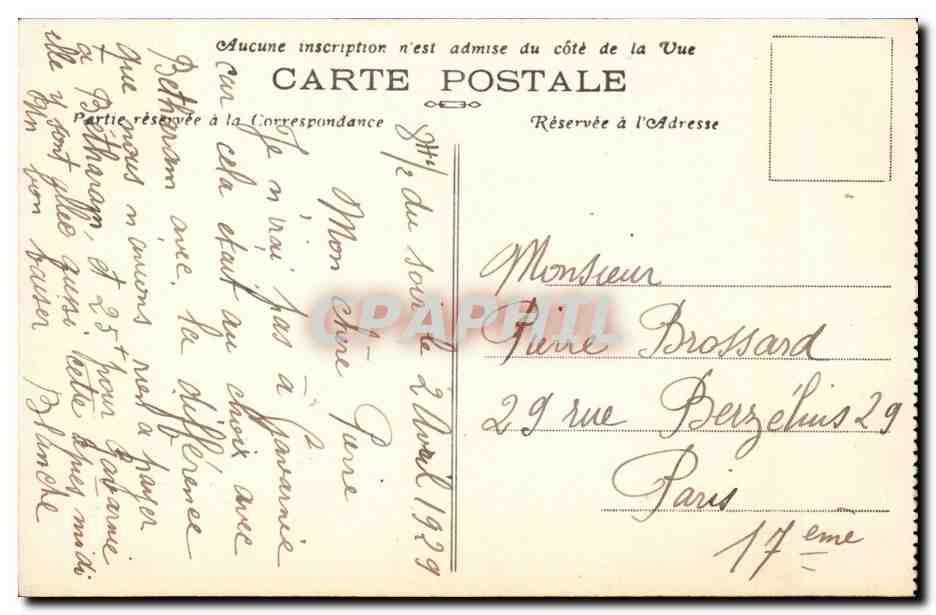 Aucune inscription n'est admise du côté de la Vue
CARTE POSTALE
Partie réservée à la Correspondance
Réservée à l'Adresse
8H 1/2 du soir le 2 Avril 1929
Mon chère Pierre
Je n'irai pas à Gavarnie
car cela était au choix avec
Betharam avec la différence
que nous n'avions rien a payer
à Bétharam, et 25f pour Gavarnie
elle y sont allés aussi cette après midi
Un bon baiser Blanche
Monsieur
Pierre Brossard
29 rue Berzélius 29
Paris
17eme
CPAPHIL